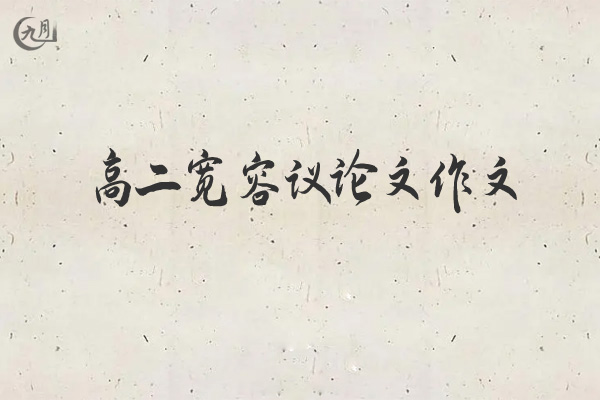 九月
高二宽容议论文作文